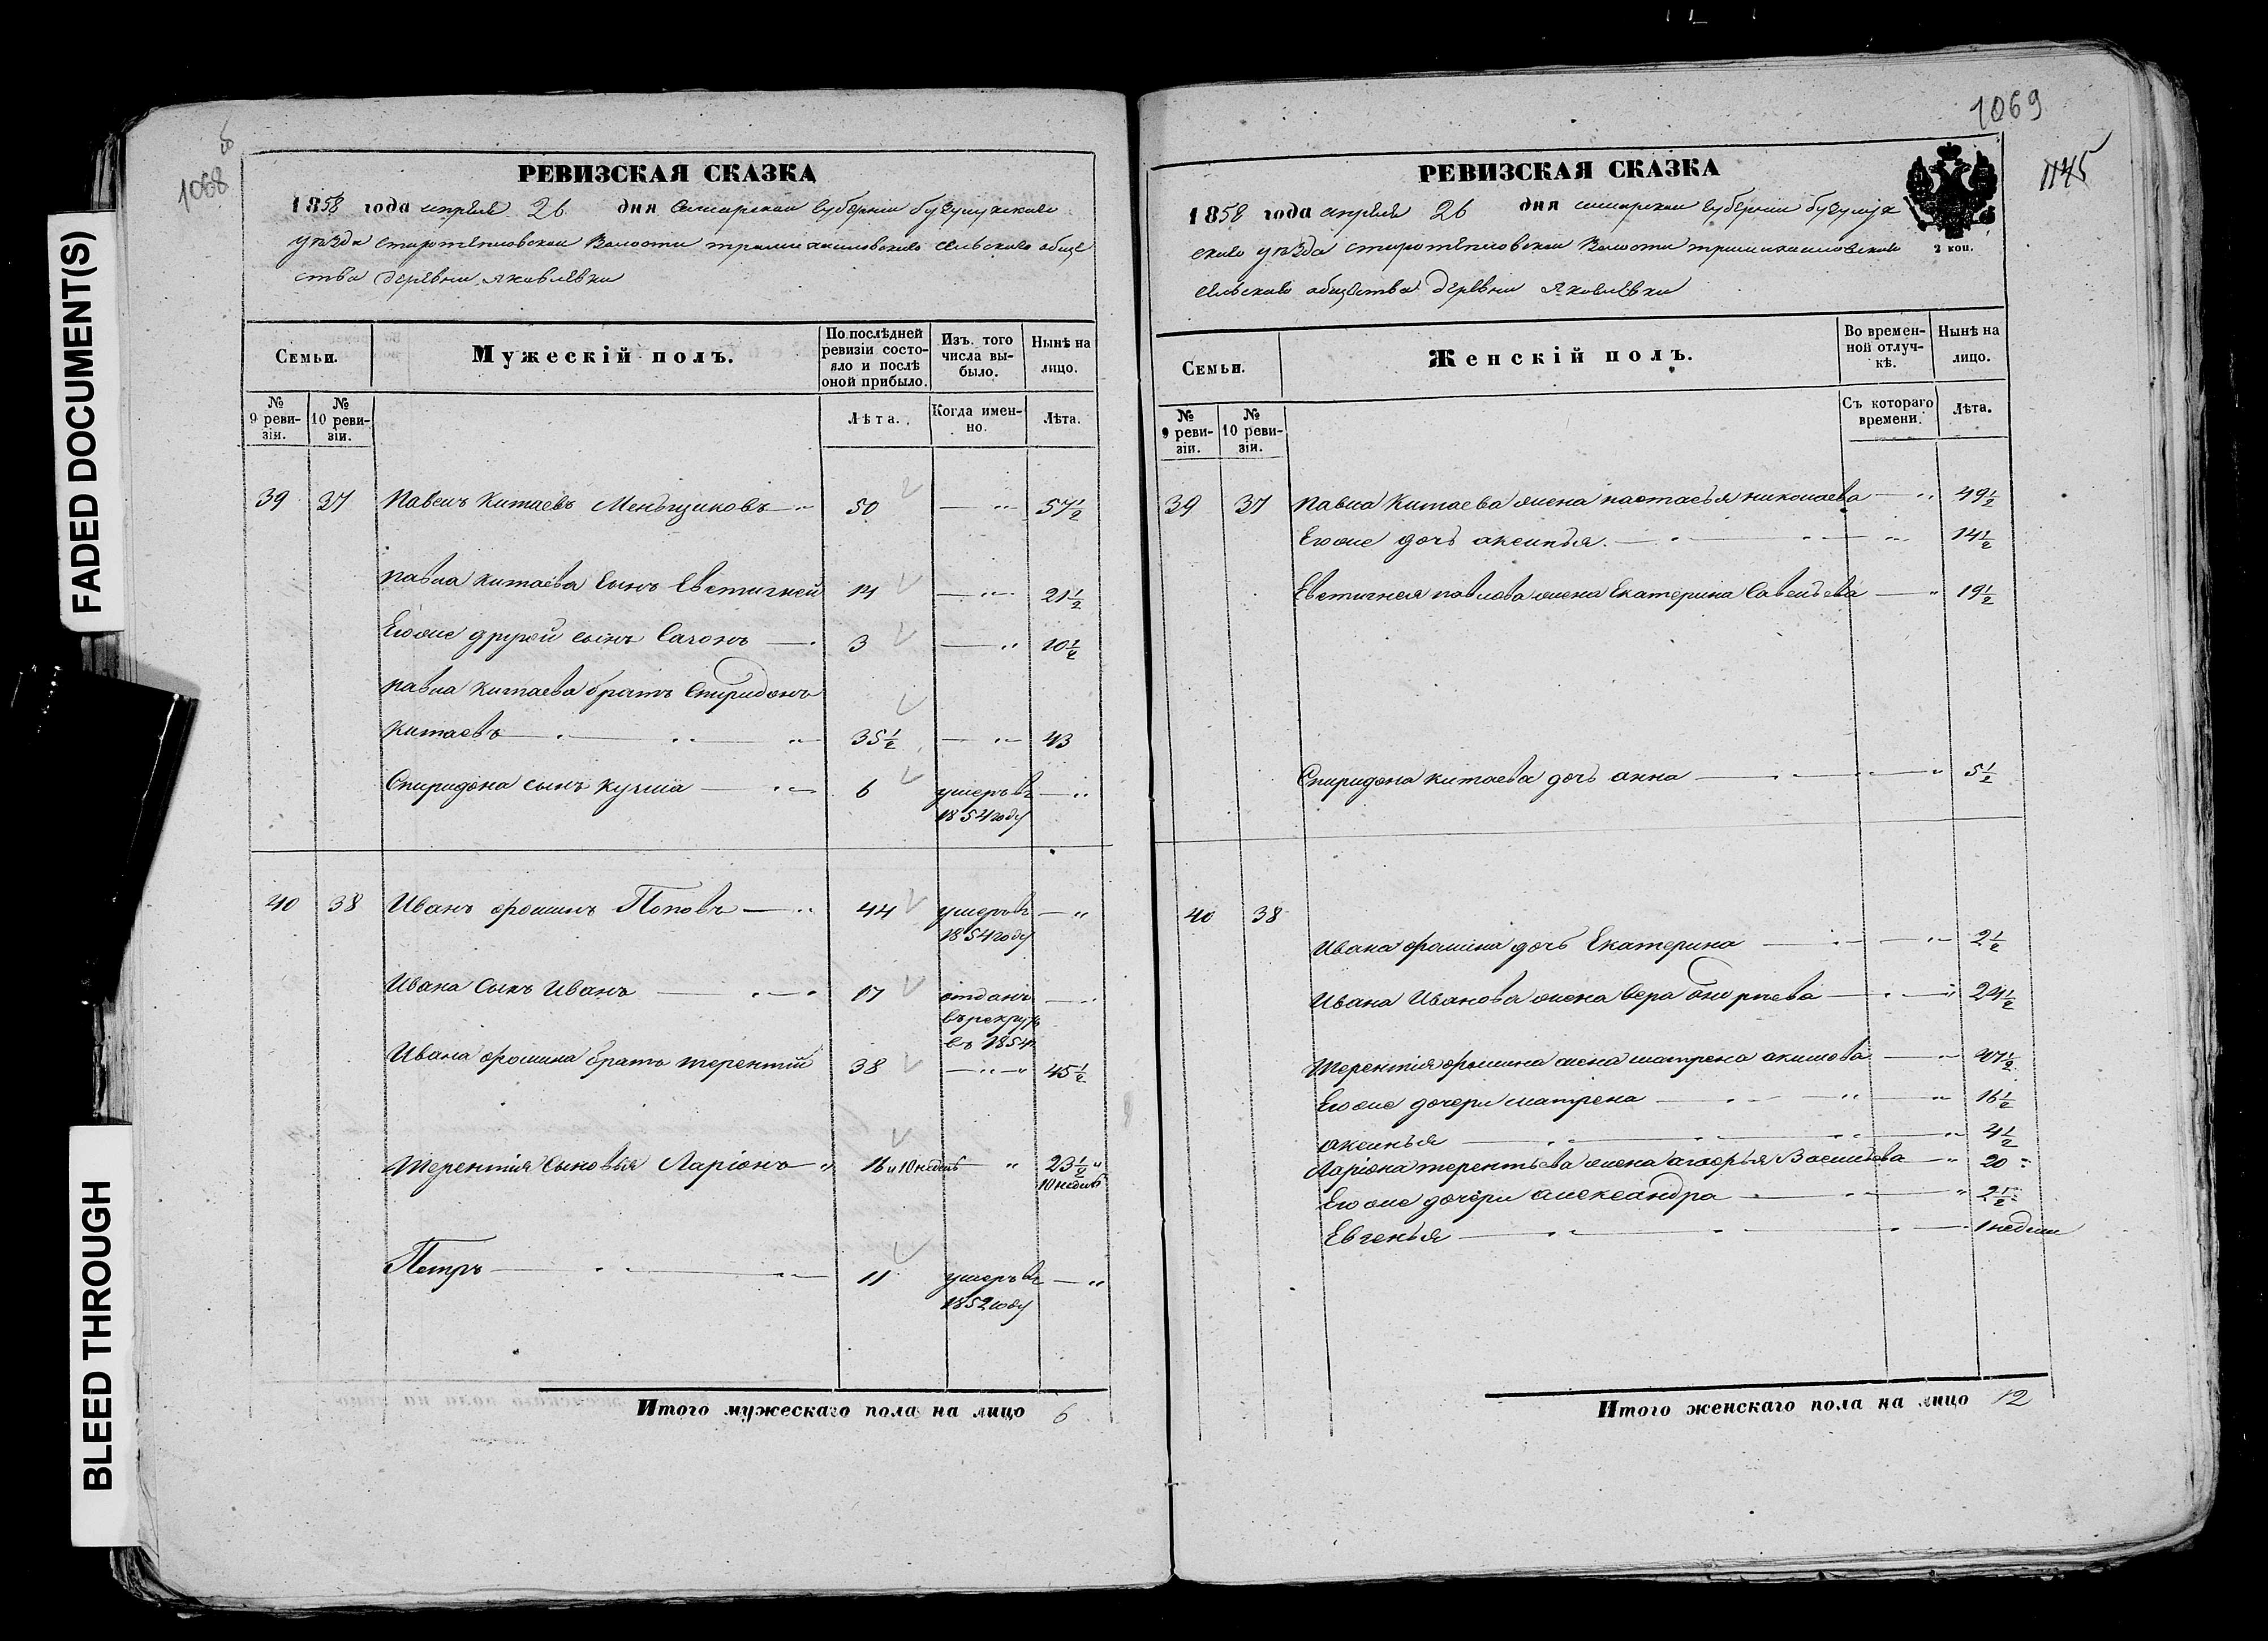 FADED DOCUMENT(S)
BLEED THROUGH
1068
РЕВИЗСКАЯ СКАЗКА
1858 года апреля 26 дня Самарской губернии бузулукскаго
уѣзда старотепловской волости сельскаго обще
ства деревни яковлевки
Семьи.
Мужескій полъ.
По послѣдней ревизіи состояло и послѣ оной прибыло.
Изъ того числа выбыло.
Нынѣ на лицо.
№ 9 ревизіи.
№ 10 ревизіи.
Лѣта.
Когда именно.
Лѣта.
39 37 Павелъ Китаевъ Меньщиковъ 50 — 57½
павла китаева сынъ Евстигней 14 — 21½
Егоже другой сынъ Сазонъ 3 — 10½
павла китаева братъ Спиридонъ
китаевъ 35½ — 43
Спиридона сынъ кузма 6 умеръ въ —
1854 году
40 38 Иванъ фоминъ Поповъ 44 умеръ въ —
1854 году
Ивана Сынъ Иванъ 17 отданъ —
въ рекруты
въ 1854
Ивана фомина братъ терентій 38 — 45½
терентія Сыновья Ларіонъ 16 и 10 недель — 23½
10 недель
Петръ 11 умеръ въ —
1852 году
Итого мужескаго пола на лицо 6
1069
1145
РЕВИЗСКАЯ СКАЗКА
1858 года апреля 26 дня самарской губернии бузулук
скаго уѣзда старотепловской волости
сельскаго общества деревни яковлевки
2 коп.
Семьи.
Женскій полъ.
Во временной отлучкѣ.
Нынѣ на лицо.
№ 9 ревизіи.
№ 10 ревизіи.
Съ котораго времени.
Лѣта.
39 37 павла Китаева жена настасья николаева — 49½
Егоже дочь аксинья — 14½
Евстигнея павлова жена Екатерина Савельева — 19½
Спиридона китаева дочь анна — 5½
40 38
Ивана фомина дочь Екатерина — 2½
Ивана Иванова жена Вера — 24½
терентія фомина жена матрена акимова — 47½
Егоже дочери матрена — 16½
аксинья — 4½
Ларіона терентьева жена агафья Васильева — 20
Егоже дочери александра — 2½
Евгенья — 1 недели
Итого женскаго пола на лицо 12